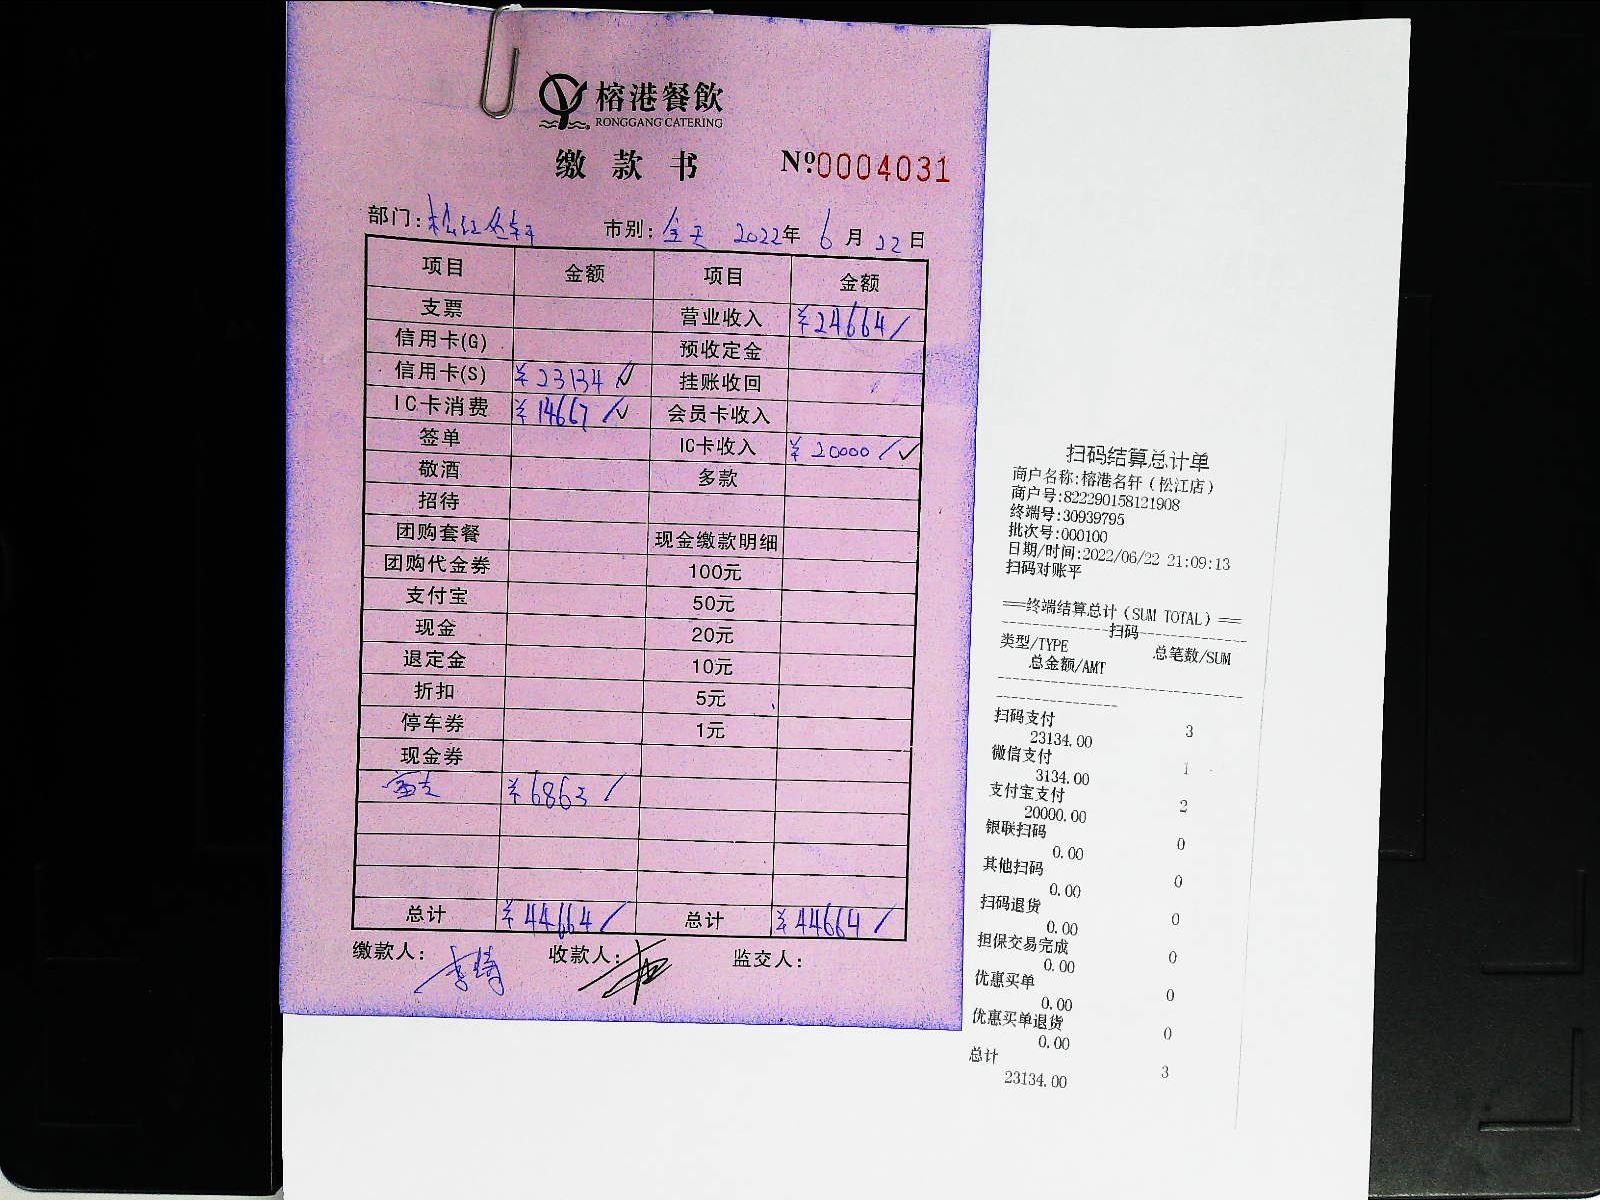 榕港餐飲
RONGGANG CATERING
缴款书 №0004031
部门:松江名轩 市别:全天 2022年6月22日
项目 金额 项目 金额
支票 营业收入 ¥24664/
信用卡(G) 预收定金
信用卡(S) ¥23134 ✓ 挂账收回
IC卡消费 ¥14667/✓ 会员卡收入
签单 IC卡收入 ¥20000/✓
敬酒 多款
招待
团购套餐 现金缴款明细
团购代金券 100元
支付宝 50元
现金 20元
退定金 10元
折扣 5元
停车券 1元
现金券
¥6863/
总计 ¥44664/ 总计 ¥44664/
缴款人: 收款人: 监交人:
扫码结算总计单
商户名称:榕港名轩(松江店)
商户号:822290158121908
终端号:30939795
批次号:000100
日期/时间:2022/06/22 21:09:13
扫码对账平
===终端结算总计(SUM TOTAL)===
----------扫码----------
类型/TYPE 总笔数/SUM
总金额/AMT
扫码支付 3
23134.00
微信支付 1
3134.00
支付宝支付 2
20000.00
银联扫码 0
0.00
其他扫码 0
0.00
扫码退货 0
0.00
担保交易完成 0
0.00
优惠买单 0
0.00
优惠买单退货 0
0.00
总计 3
23134.00